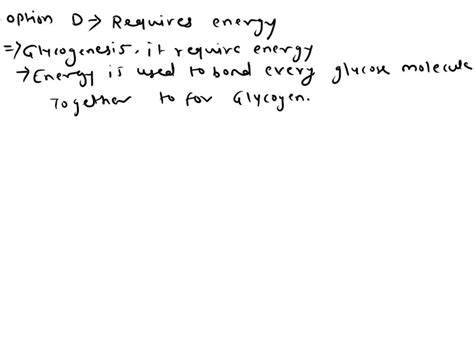 option D → Requires energy
⇒ Glycogenesis, it require energy
→ Energy is used to bond every glucose molecule
Together to for Glycogen.